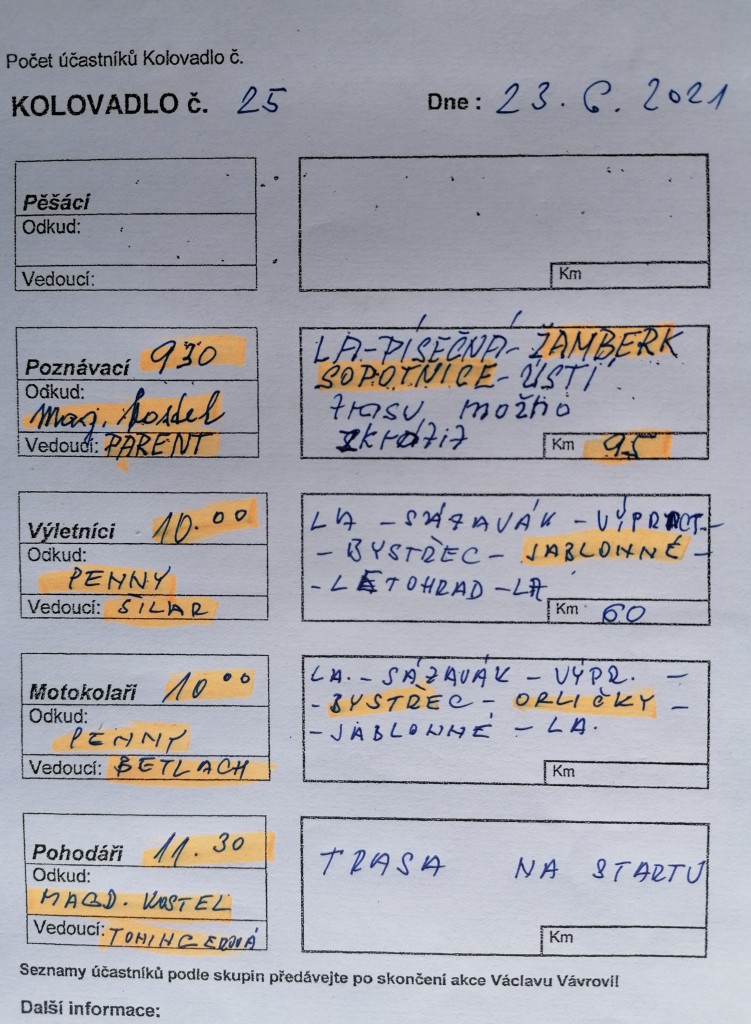 Počet účastníků Kolovadlo č.
KOLOVADLO č. 25 Dne : 23. 6. 2021
Pěšáci
Odkud:
Vedoucí:
Km
Poznávací 930
Odkud:
Mag. kostel
Vedoucí: PARENT
LA-PÍSEČNÁ- ŽAMBERK
SOPOTNICE- ÚSTÍ
trasu možno
zkrátit
Km 95
Výletníci 10.00
Odkud:
PENNY
Vedoucí: ŠILAR
LA - SÁZAVÁK - VÝPRACT.-
- BYSTŘEC - JABLONNÉ -
- LETOHRAD - LA
Km 60
Motokolaři 10 00
Odkud:
PENNY
Vedoucí: BETLACH
LA. - SÁZAVÁK - VÝPR. -
- BYSTŘEC - ORLIČKY -
- JABLONNÉ - LA.
Km
Pohodáři 11.30
Odkud:
MAGD. KOSTEL
Vedoucí:
TRASA NA STARTU
Km
Seznamy účastníků podle skupin předávejte po skončení akce Václavu Vávrovi!
Další informace: